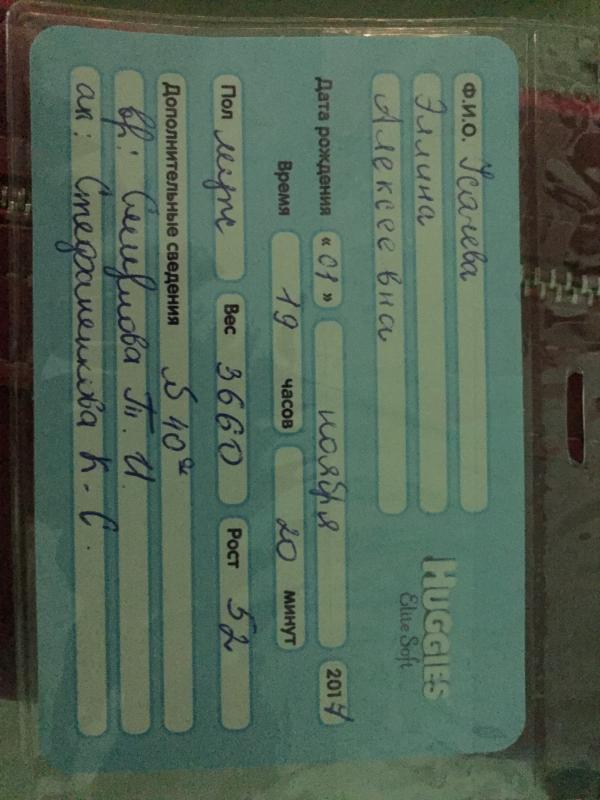 HUGGIES
Elite Soft
Ф.И.О. Усачева
Эллина
Алексеевна
Дата рождения « 01 » ноября 2014
Время 19 часов 20 минут
Пол муж Вес 3660 Рост 52
Дополнительные сведения № 40
вр: Смирнова Т. И
ак: Стефаненкова К - С.